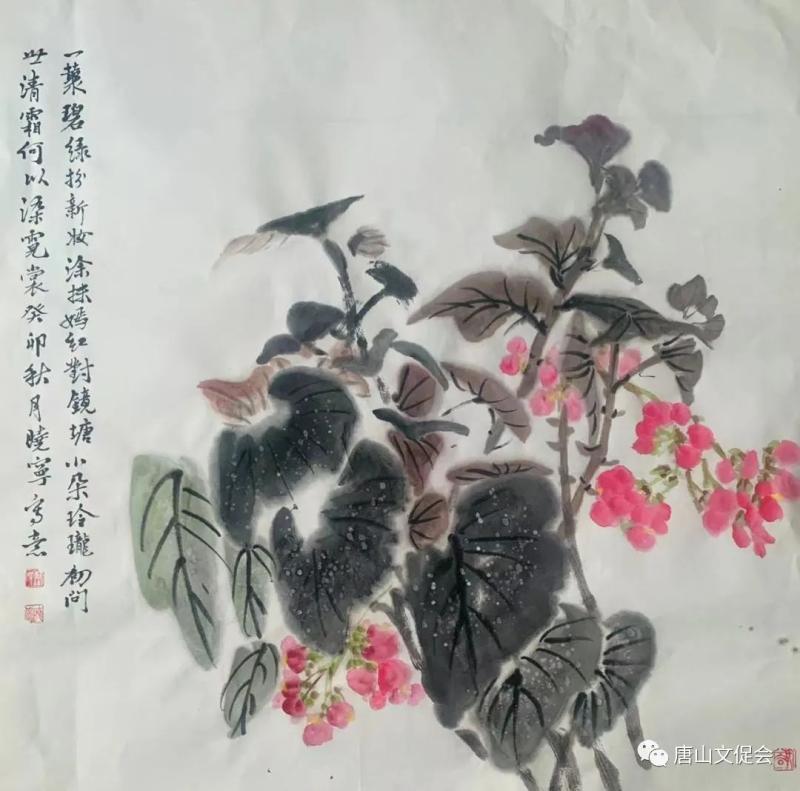 一蘂碧绿扮新妝涂抹嫣红對鏡塘小朵玲瓏初问
世清霜何以染霓裳癸卯秋月曉寧写意
唐山文促会